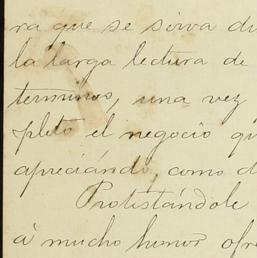 ra que se sirva di
la larga lectura de
terminos, una vez
pleto el negocio qu
apreciándo, como d
Protestándole
á mucho honor ofre